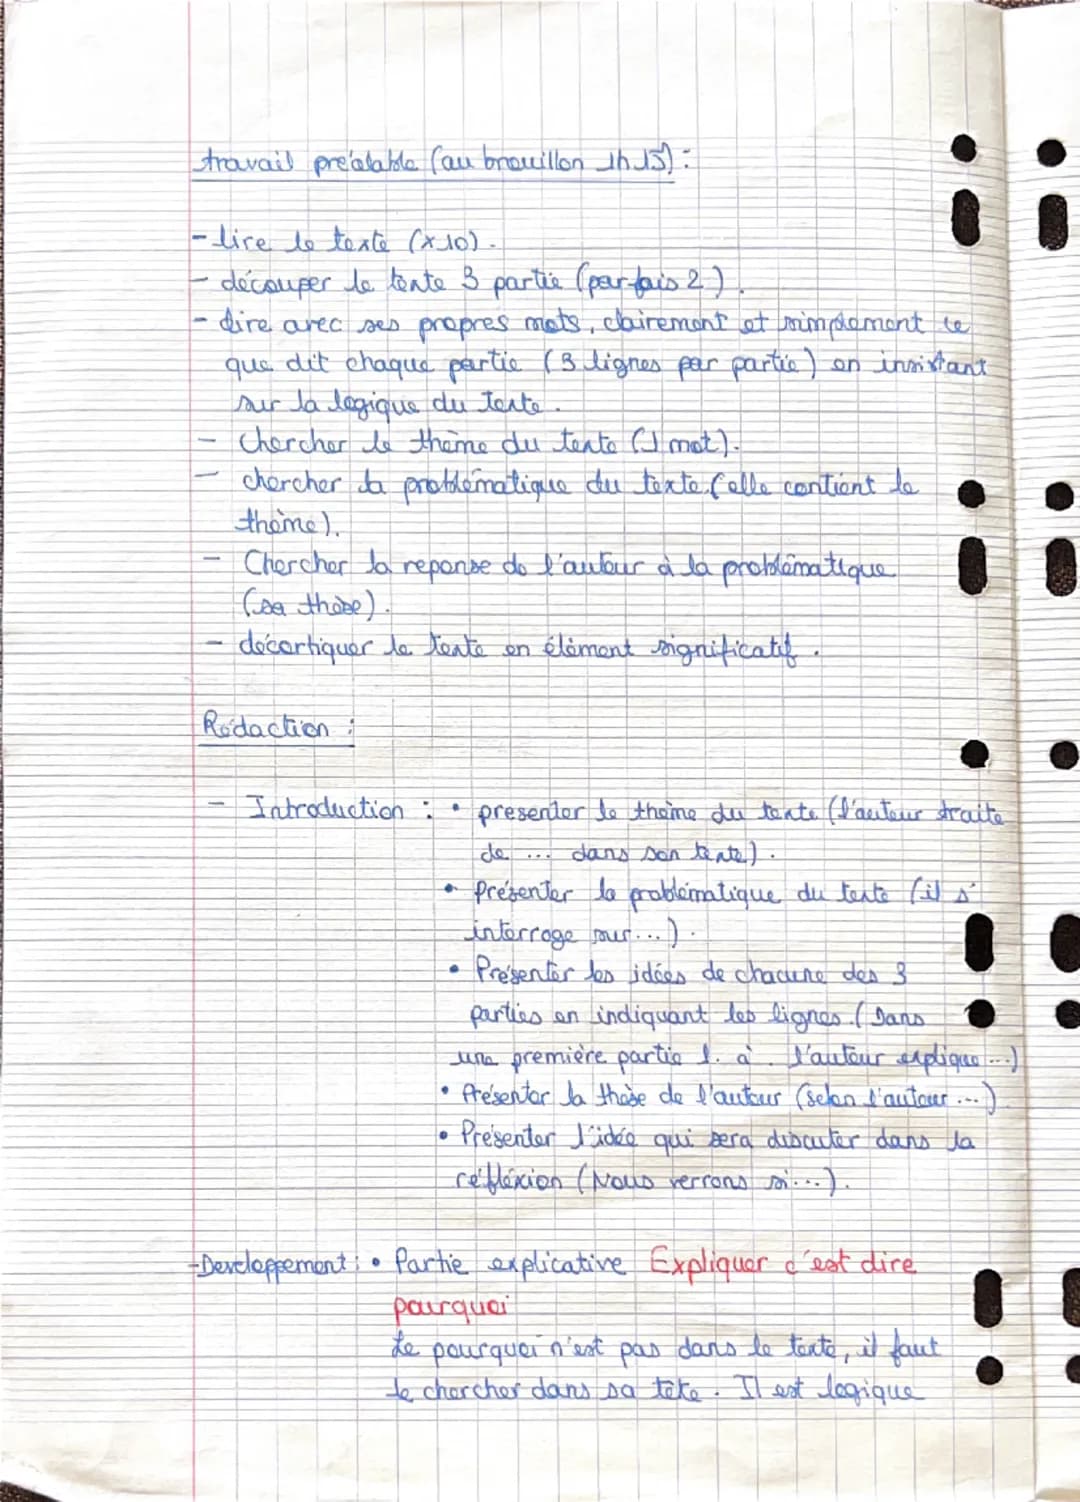 travail préalable (au brouillon 1h15) :
- lire le texte (x10).
- découper le texte 3 partie (parfois 2).
- dire avec ses propres mots, clairement et simplement ce
que dit chaque partie (3 lignes par partie) en insistant
sur la logique du texte.
- chercher le thème du texte (1 mot).
- chercher la problématique du texte (elle contient le
thème).
- Chercher la reponse de l'auteur à la problématique
(sa thèse).
- décortiquer le texte en élément significatif.
Rédaction :
- Introduction : • presenter le thème du texte (l'auteur traite
de ... dans son texte).
• Présenter la problématique du texte (il s'
interroge sur...).
• Présenter les idées de chacune des 3
parties en indiquant les lignes. (Dans
une première partie l. à . l'auteur explique ...)
• Présenter la thèse de l'auteur (selon l'auteur ...)
• Présenter l'idée qui sera discuter dans la
réfléxion (Nous verrons si...).
- Developpement : • Partie explicative Expliquer c'est dire
pourquoi
Le pourquoi n'est pas dans le texte, il faut
le chercher dans sa tête. Il est logique